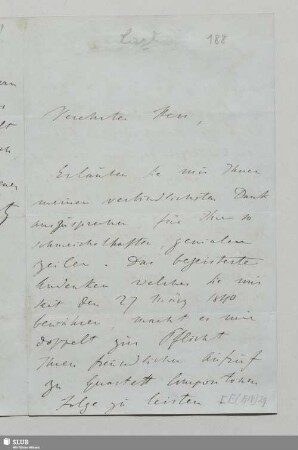 Liszt
188
Verehrter Herr,
Erlauben Sie mir Ihnen
meinen verbindlichsten Dank
auszusprechen für Ihre so
schmeichelhaften, genialen
Zeilen. Das begeisterte
Andenken welches Sie mir
seit den 27 März 1840
bewahren, macht es mir
doppelt zur Pflicht
Ihren freundlichen Aufruf
zu Quartett Compositionen
Folge zu leisten
SLUB
Wir führen Wissen.